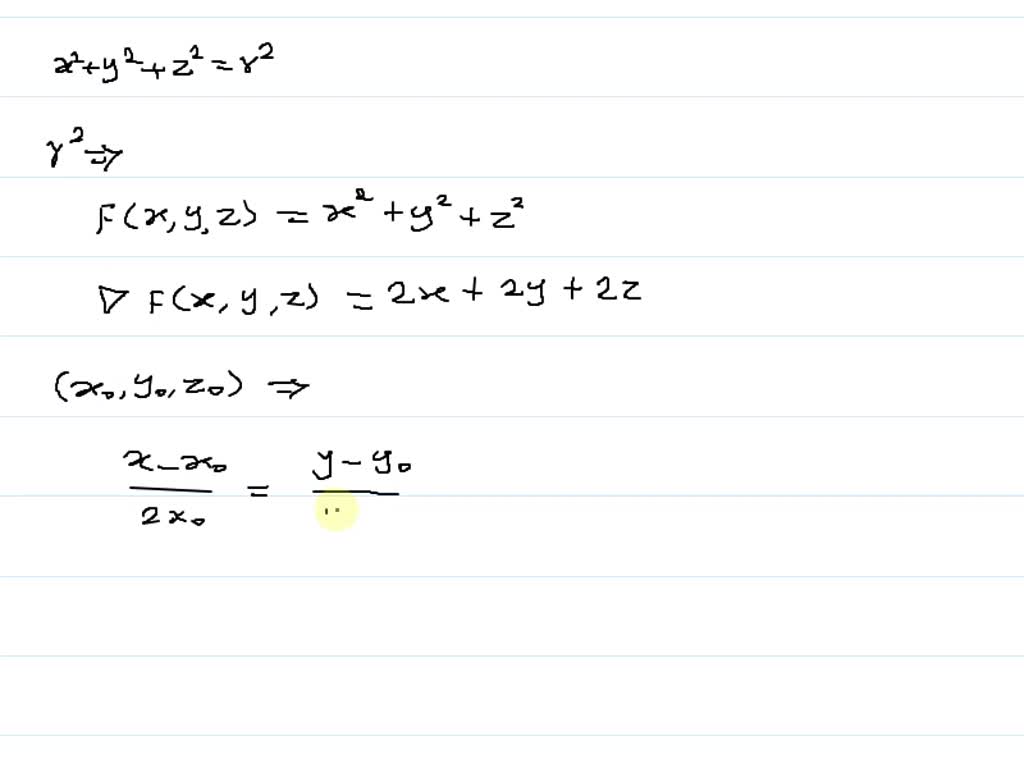 x²+y²+z²=r²
r²⇒
F(x,y,z) = x²+y²+z²
∇ F(x,y,z) = 2x + 2y + 2z
(x₀,y₀,z₀) ⇒
x-x₀/2x₀ = y-y₀/